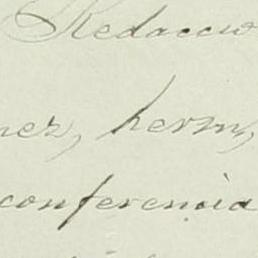 Redaccio
nez, herm,
conferencia